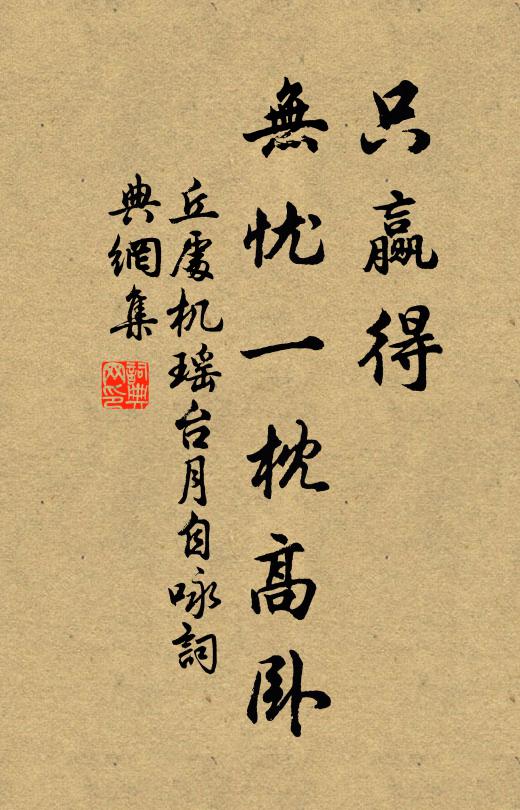 只贏得
無忧一枕高卧
丘處机瑶台月自咏詞
典網集
詞典網印